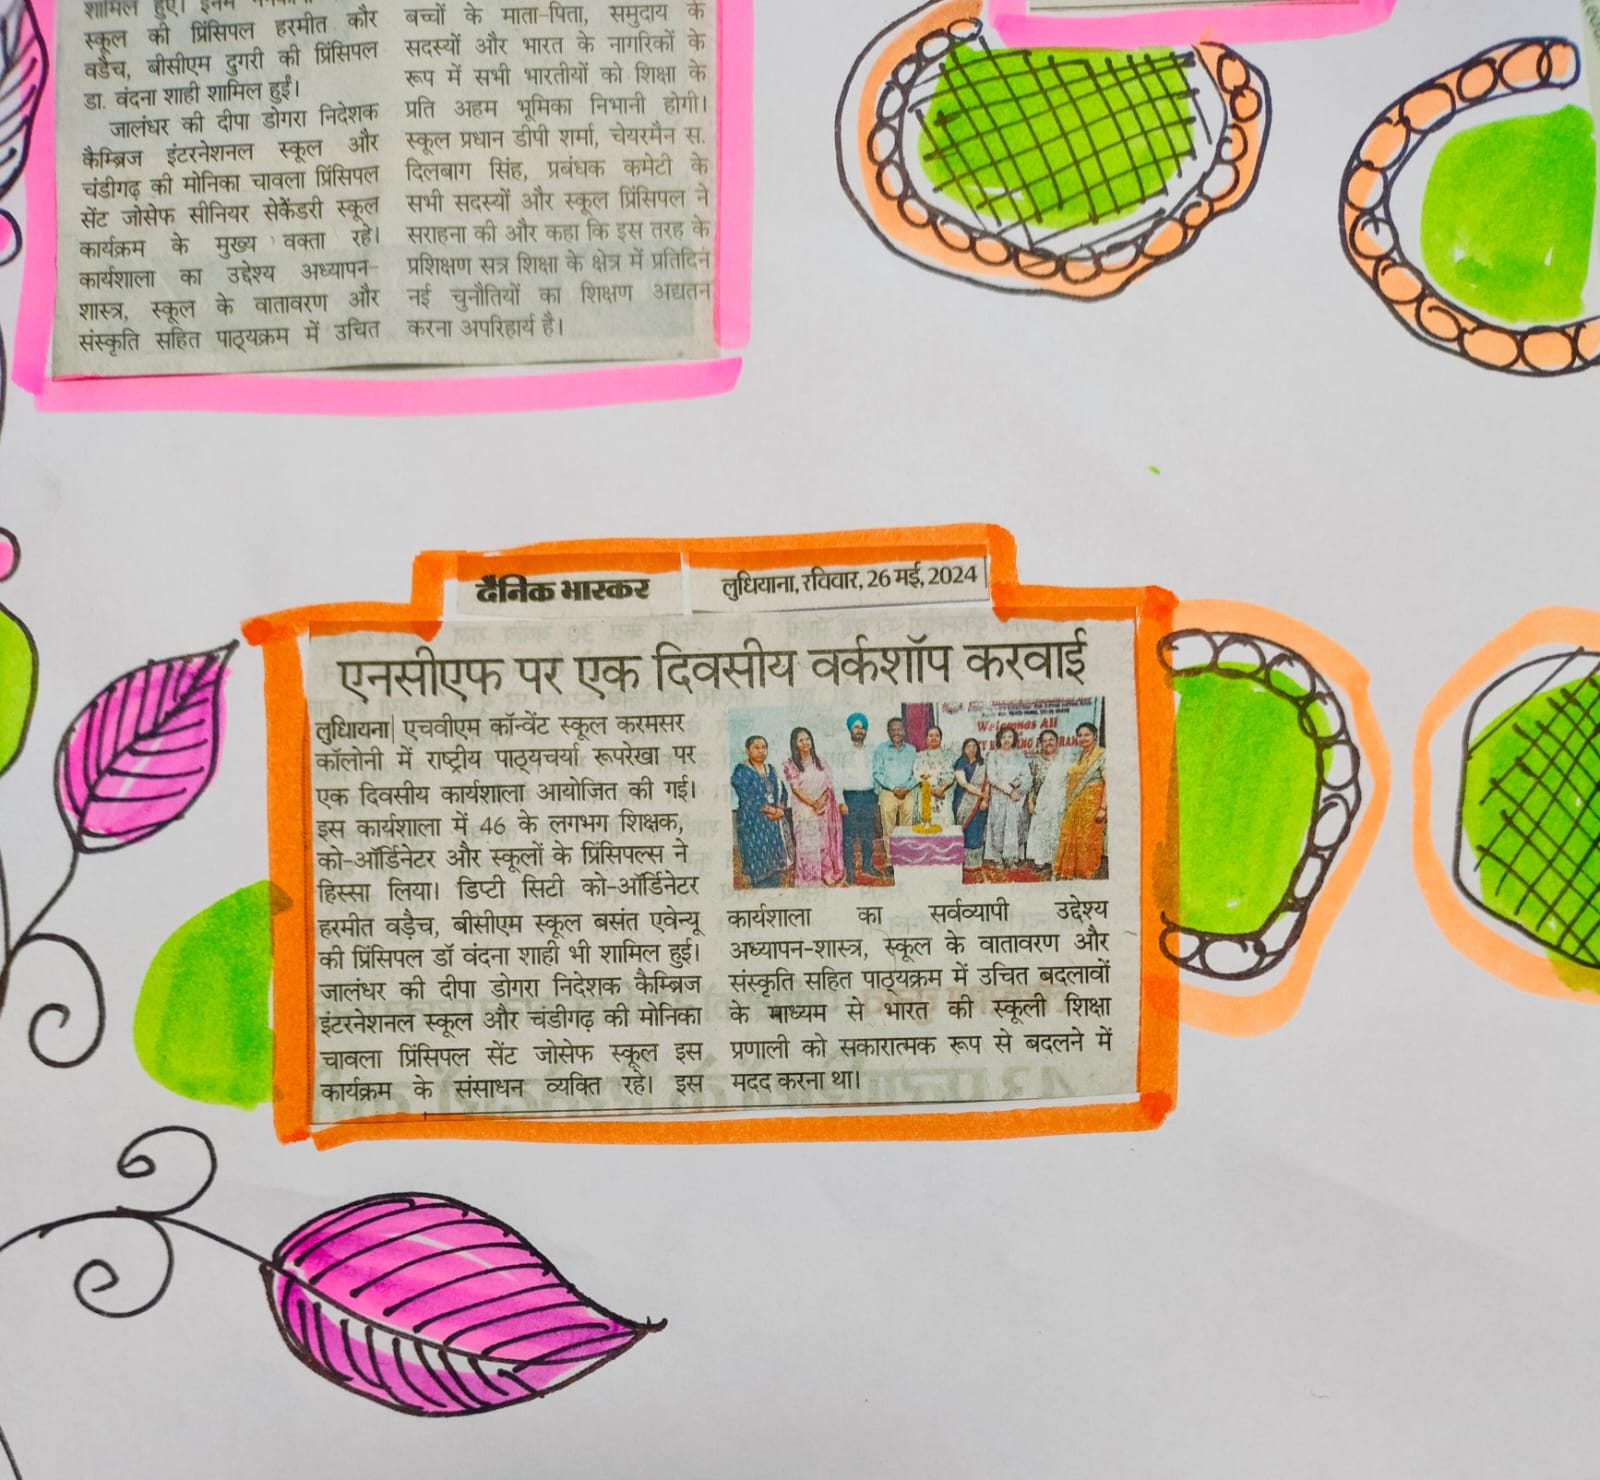 शामिल हुए। इनमें
स्कूल की प्रिंसिपल हरमीत कौर
वडैच, बीसीएम दुगरी की प्रिंसिपल
डा. वंदना शाही शामिल हुईं।
जालंधर की दीपा डोगरा निदेशक
कैम्ब्रिज इंटरनेशनल स्कूल और
चंडीगढ़ की मोनिका चावला प्रिंसिपल
सेंट जोसेफ सीनियर सेकेंडरी स्कूल
कार्यक्रम के मुख्य वक्ता रहे।
कार्यशाला का उद्देश्य अध्यापन-
शास्त्र, स्कूल के वातावरण और
संस्कृति सहित पाठ्यक्रम में उचित
बच्चों के माता-पिता, समुदाय के
सदस्यों और भारत के नागरिकों के
रूप में सभी भारतीयों को शिक्षा के
प्रति अहम भूमिका निभानी होगी।
स्कूल प्रधान डीपी शर्मा, चेयरमैन स.
दिलबाग सिंह, प्रबंधक कमेटी के
सभी सदस्यों और स्कूल प्रिंसिपल ने
सराहना की और कहा कि इस तरह के
प्रशिक्षण सत्र शिक्षा के क्षेत्र में प्रतिदिन
नई चुनौतियों का शिक्षण अद्यतन
करना अपरिहार्य है।
दैनिक भास्कर
लुधियाना, रविवार, 26 मई, 2024
एनसीएफ पर एक दिवसीय वर्कशॉप करवाई
लुधियाना| एचवीएम कॉन्वेंट स्कूल करमसर
कॉलोनी में राष्ट्रीय पाठ्यचर्या रूपरेखा पर
एक दिवसीय कार्यशाला आयोजित की गई।
इस कार्यशाला में 46 के लगभग शिक्षक,
को-ऑर्डिनेटर और स्कूलों के प्रिंसिपल्स ने
हिस्सा लिया। डिप्टी सिटी को-ऑर्डिनेटर
हरमीत वड़ैच, बीसीएम स्कूल बसंत एवेन्यू
की प्रिंसिपल डॉ वंदना शाही भी शामिल हुई।
जालंधर की दीपा डोगरा निदेशक कैम्ब्रिज
इंटरनेशनल स्कूल और चंडीगढ़ की मोनिका
चावला प्रिंसिपल सेंट जोसेफ स्कूल इस
कार्यक्रम के संसाधन व्यक्ति रहे। इस
Welcomes All
कार्यशाला का सर्वव्यापी उद्देश्य
अध्यापन-शास्त्र, स्कूल के वातावरण और
संस्कृति सहित पाठ्यक्रम में उचित बदलावों
के माध्यम से भारत की स्कूली शिक्षा
प्रणाली को सकारात्मक रूप से बदलने में
मदद करना था।